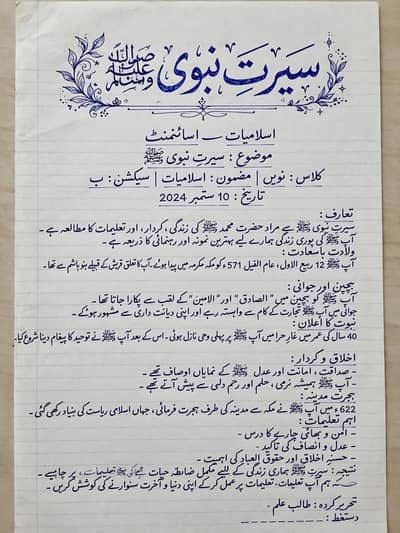 سیرتِ نبوی ﷺ
اسلامیات – اسائنمنٹ
موضوع : سیرتِ نبوی ﷺ
کلاس : نویں | مضمون : اسلامیات | سیکشن : ب
تاریخ : 10 ستمبر 2024
تعارف :
سیرتِ نبوی ﷺ سے مراد حضرت محمد ﷺ کی زندگی ، کردار ، اور تعلیمات کا مطالعہ ہے ۔
آپ ﷺ کی پوری زندگی ہمارے لیے بہترین نمونہ اور رہنمائی کا ذریعہ ہے ۔
ولادت باسعادت :
آپ ﷺ 12 ربیع الاول ، عام الفیل 571ء کو مکہ مکرمہ میں پیدا ہوئے۔ آپ کا تعلق قریش کے قبیلے بنو ہاشم سے تھا ۔
بچپن اور جوانی :
آپ ﷺ کو بچپن میں "الصادق" اور "الامین" کے لقب سے پکارا جاتا تھا ۔
جوانی میں آپ ﷺ تجارت کے کام سے وابستہ رہے اور اپنی دیانت داری سے مشہور ہوئے ۔
نبوت کا اعلان :
40 سال کی عمر میں غارِ حرا میں آپ ﷺ پر پہلی وحی نازل ہوئی ۔ اس کے بعد آپ ﷺ نے توحید کا پیغام دینا شروع کیا ۔
اخلاق و کردار :
– صداقت ، امانت اور عدل ﷺ کے نمایاں اوصاف تھے ۔
– آپ ﷺ ہمیشہ نرمی ، حلم اور رحم دلی سے پیش آتے تھے ۔
ہجرت مدینہ :
622ء میں آپ ﷺ نے مکہ سے مدینہ کی طرف ہجرت فرمائی ، جہاں اسلامی ریاست کی بنیاد رکھی گئی ۔
اہم تعلیمات :
– امن و بھائی چارے کا درس ۔
– عدل و انصاف کی تاکید ۔
– حسنِ اخلاق اور حقوق العباد کی اہمیت ۔
نتیجہ : سیرت ﷺ ہماری زندگی کے لیے مکمل ضابطہ حیات ﷺ کی تعلیمات ، پر چاہیے ۔
ہم آپ تعلیمات ، تعلیمات پر عمل کر کے اپنی دنیا و آخرت سنوارنے کی کوشش کریں ۔
تحریر کردہ : طالب علم ۔
دستخط : ـ ـ ـ ـ ـ ـ ـ ـ